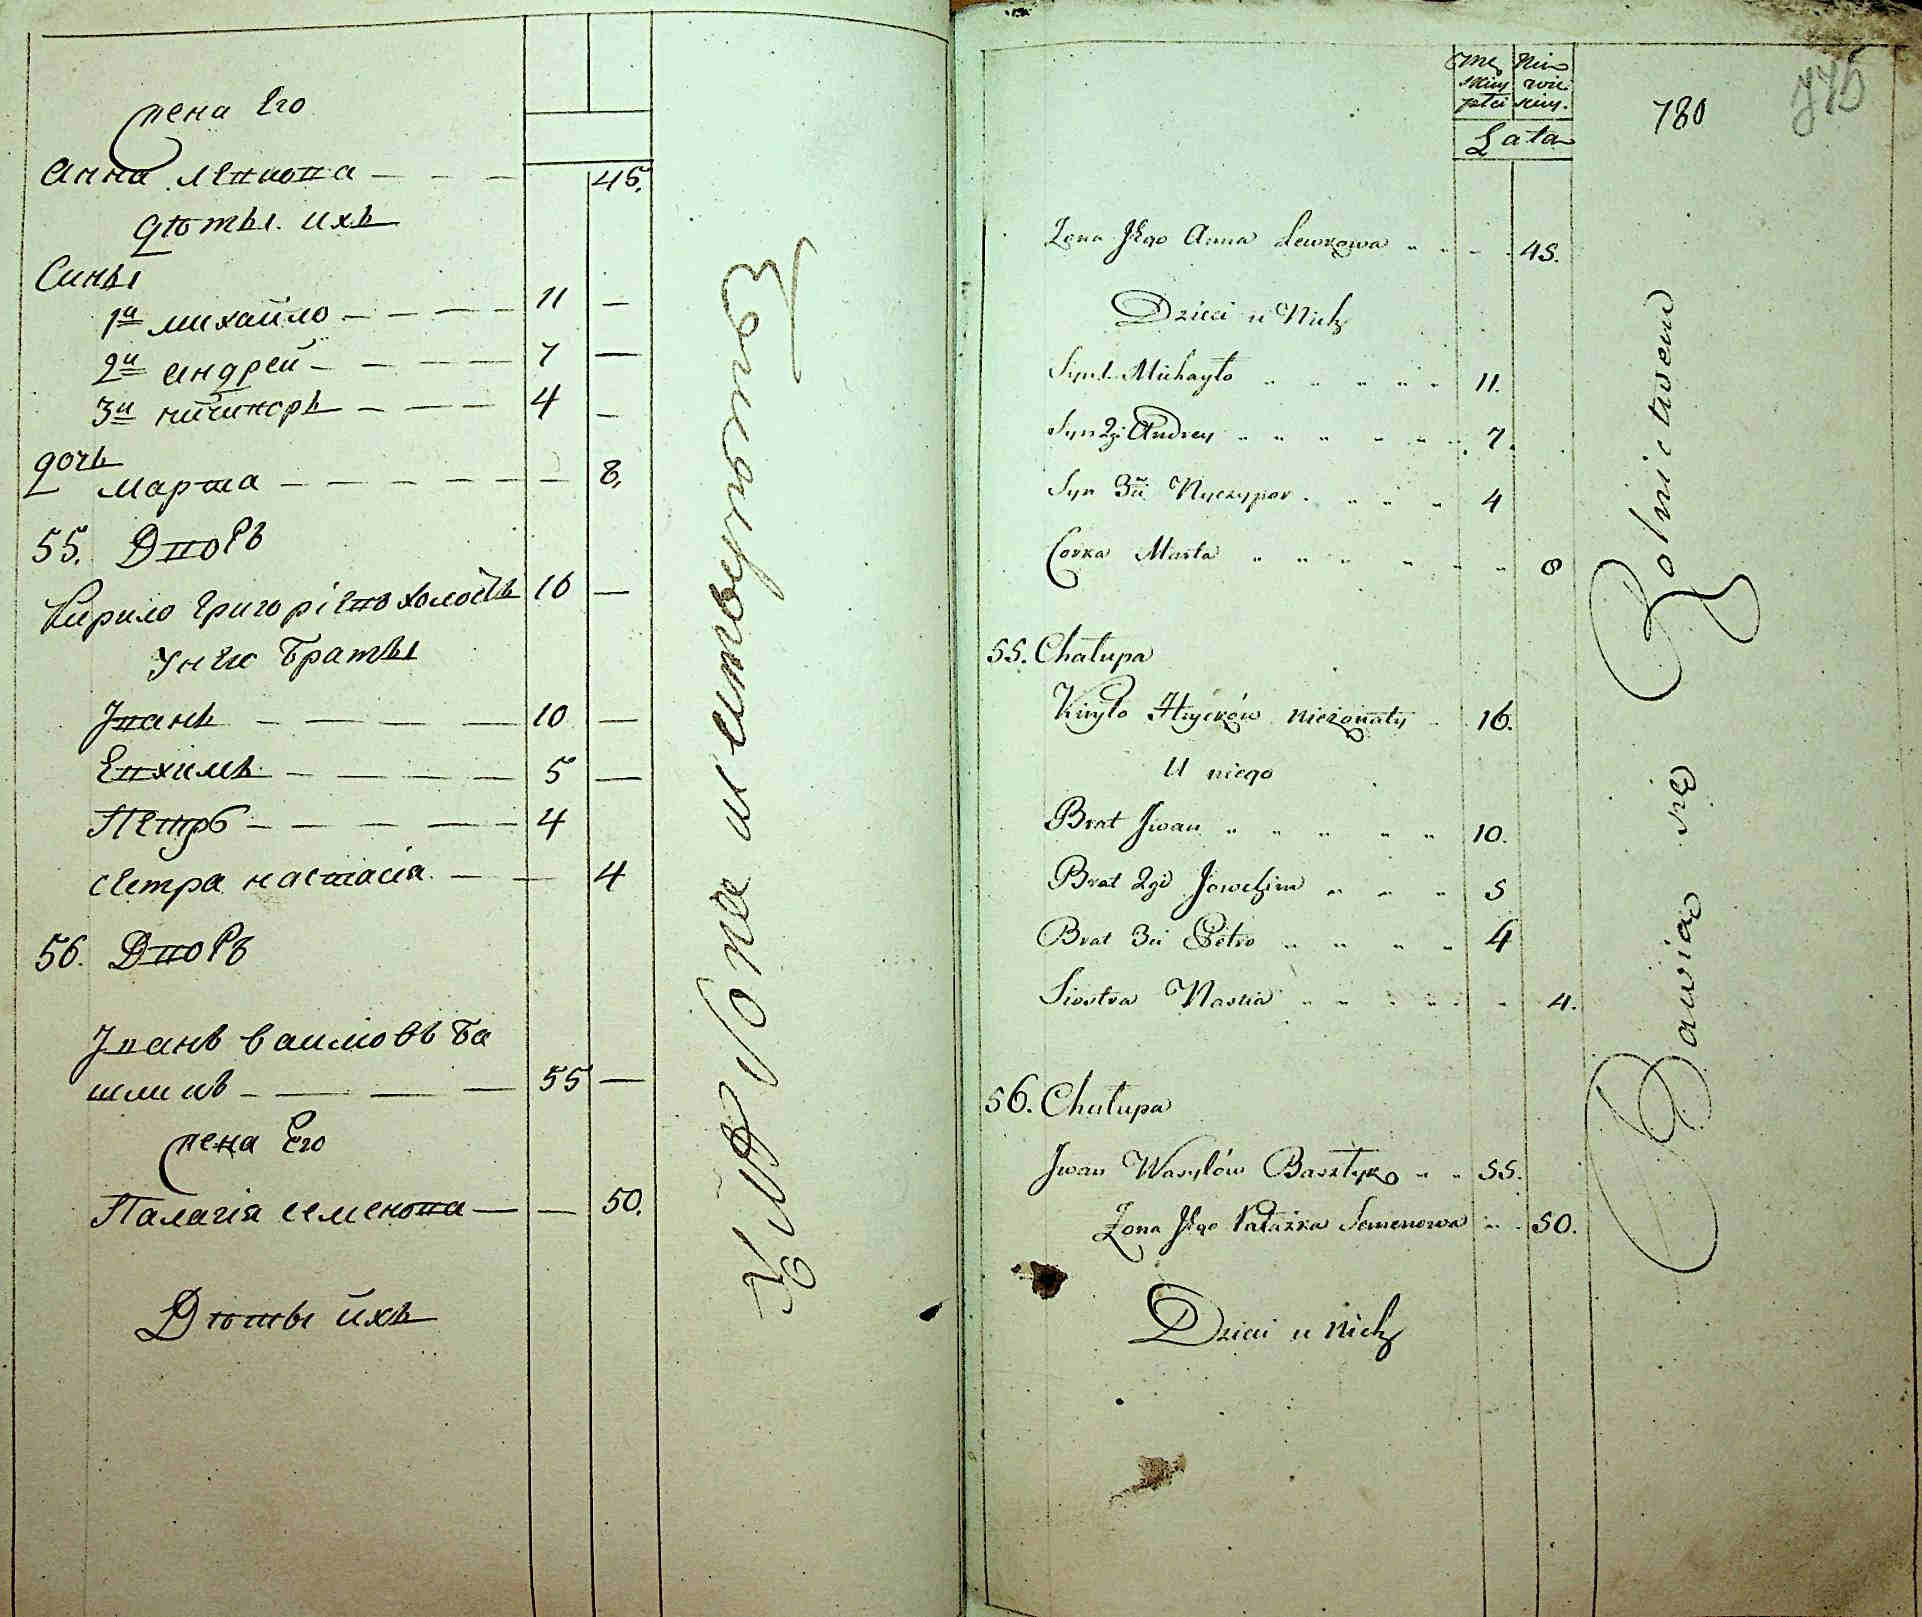 жена Его
Анна левкова — — — 45.
дѣти ихъ
Сины
1й михайло — — — — 11 —
2й андрей — — — — 7 —
3й ничипоръ — — — 4 —
дочь
Марта — — — — — — 8.
55. Дворъ
Кирило Григоріевъ холостъ 16 —
У него братьы
Иванъ — — — — 10 —
Евхимъ — — — — 5 —
Петръ — — — — 4
сестра настасія — — 4
56. Дворъ
Иванъ Василовъ Ба
шликъ — — — — 55 —
жена Его
Палагія семенова — — 50.
Дѣты ихъ
męz
kiey
płci
Lata
780
775
Żona Jego Anna Lewkowa 45.
Dzieci u Nich
Syn 1. Michayło 11.
Syn 2gi Andrey 7.
Syn 3ci Nyczypor 4
Corka Marta 8
55. Chałupa
Kiryło Hrycków nieżonaty 16.
U niego
Brat Jwan 10.
Brat 2gi Jowchim 5
Brat 3ci Petro 4
Siostra Nastia 4.
56. Chałupa
Jwan Wasylów Basztyk 55.
Żona Jego Pałażka Semenowa 50.
Dzieci u nich
Bawią się Rolnictwem